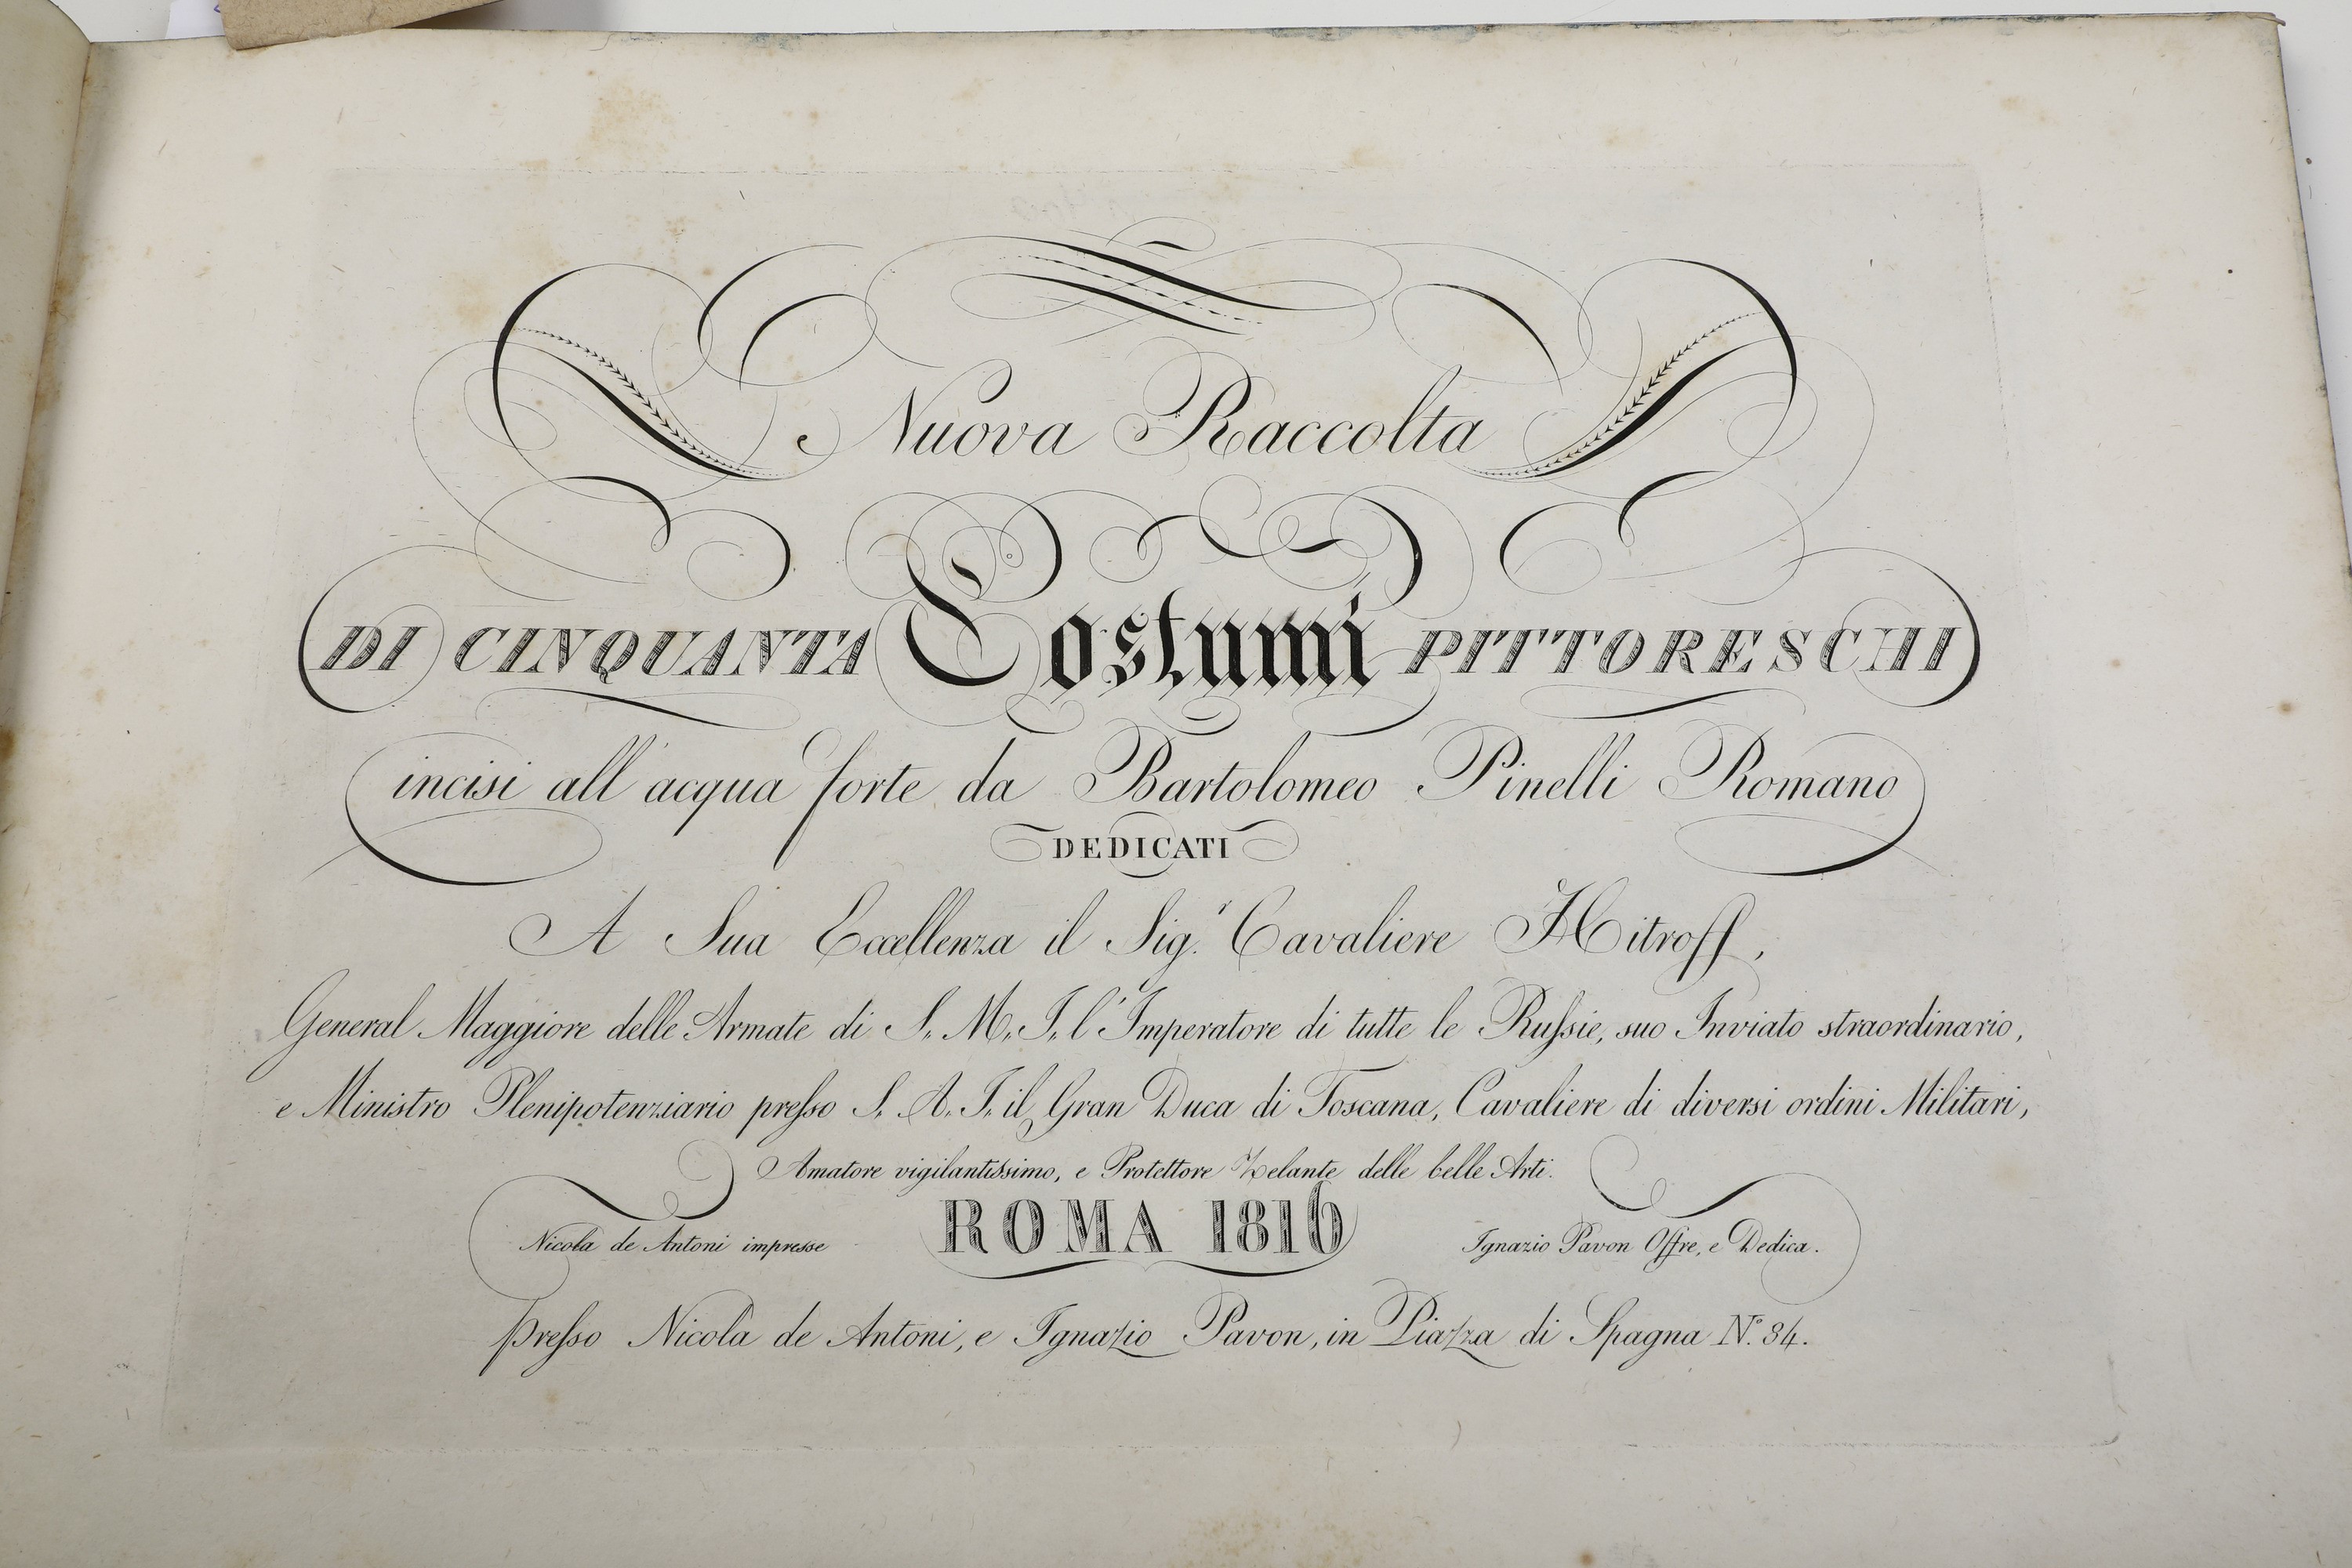 Nuova Raccolta
DI CINQUANTA Costumi PITTORESCHI
incisi all'acqua forte da Bartolomeo Pinelli Romano
DEDICATI
A Sua Eccellenza il Sig.r Cavaliere Hitroff,
General Maggiore delle Armate di S. M. I. l'Imperatore di tutte le Rußie, suo Inviato straordinario,
e Ministro Plenipotenziario preßo S. A. I. il Gran Duca di Toscana, Cavaliere di diversi ordini Militari,
Amatore vigilantissimo, e Protettore Zelante delle belle Arti.
ROMA 1816
Nicola de Antoni impresse
Ignazio Pavon Offre, e Dedica.
Preßo Nicola de Antoni, e Ignazio Pavon, in Piazza di Spagna N.° 84.